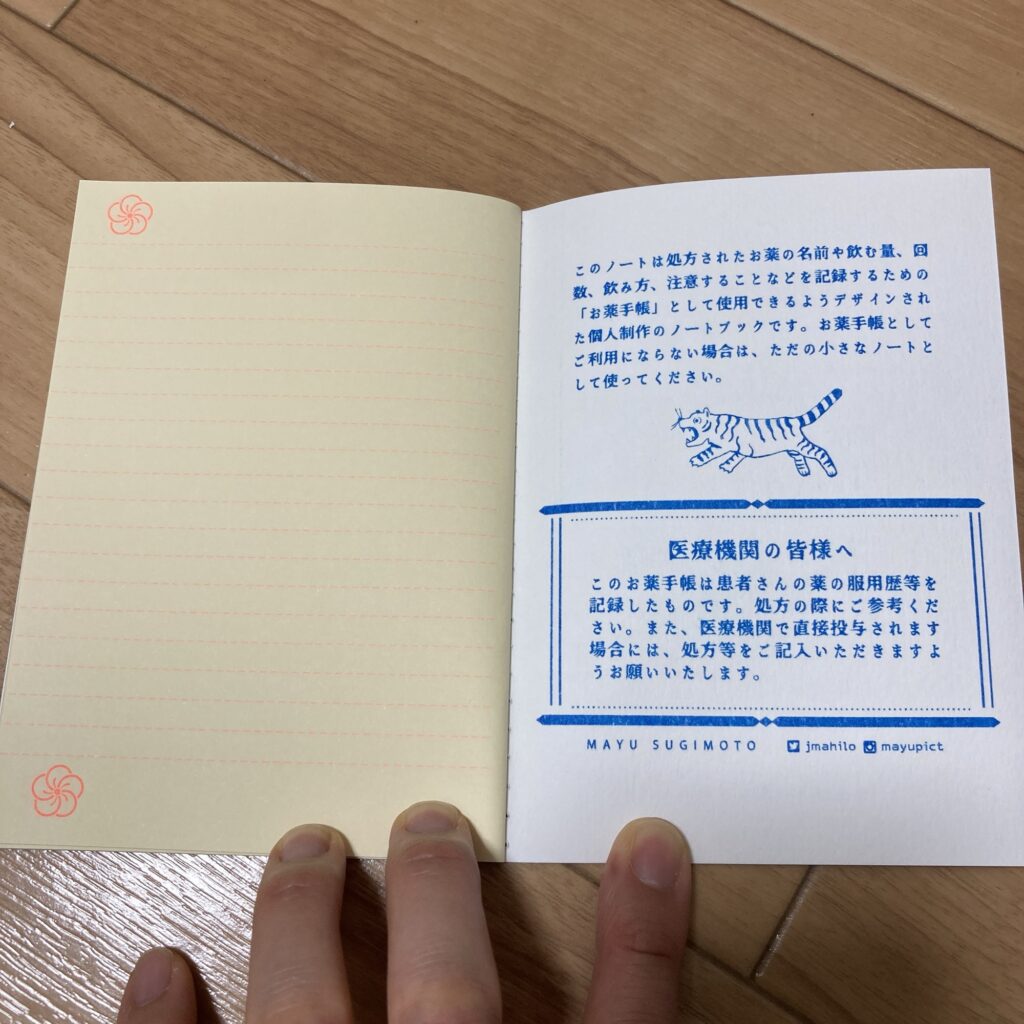 このノートは処方されたお薬の名前や飲む量、回
数、飲み方、注意することなどを記録するための
「お薬手帳」として使用できるようデザインされ
た個人制作のノートブックです。お薬手帳として
ご利用にならない場合は、ただの小さなノートと
して使ってください。
医療機関の皆様へ
このお薬手帳は患者さんの薬の服用歴等を
記録したものです。処方の際にご参考くだ
さい。また、医療機関で直接投与されます
場合には、処方等をご記入いただきますよ
うお願いいたします。
MAYU SUGIMOTO jmahilo mayupict